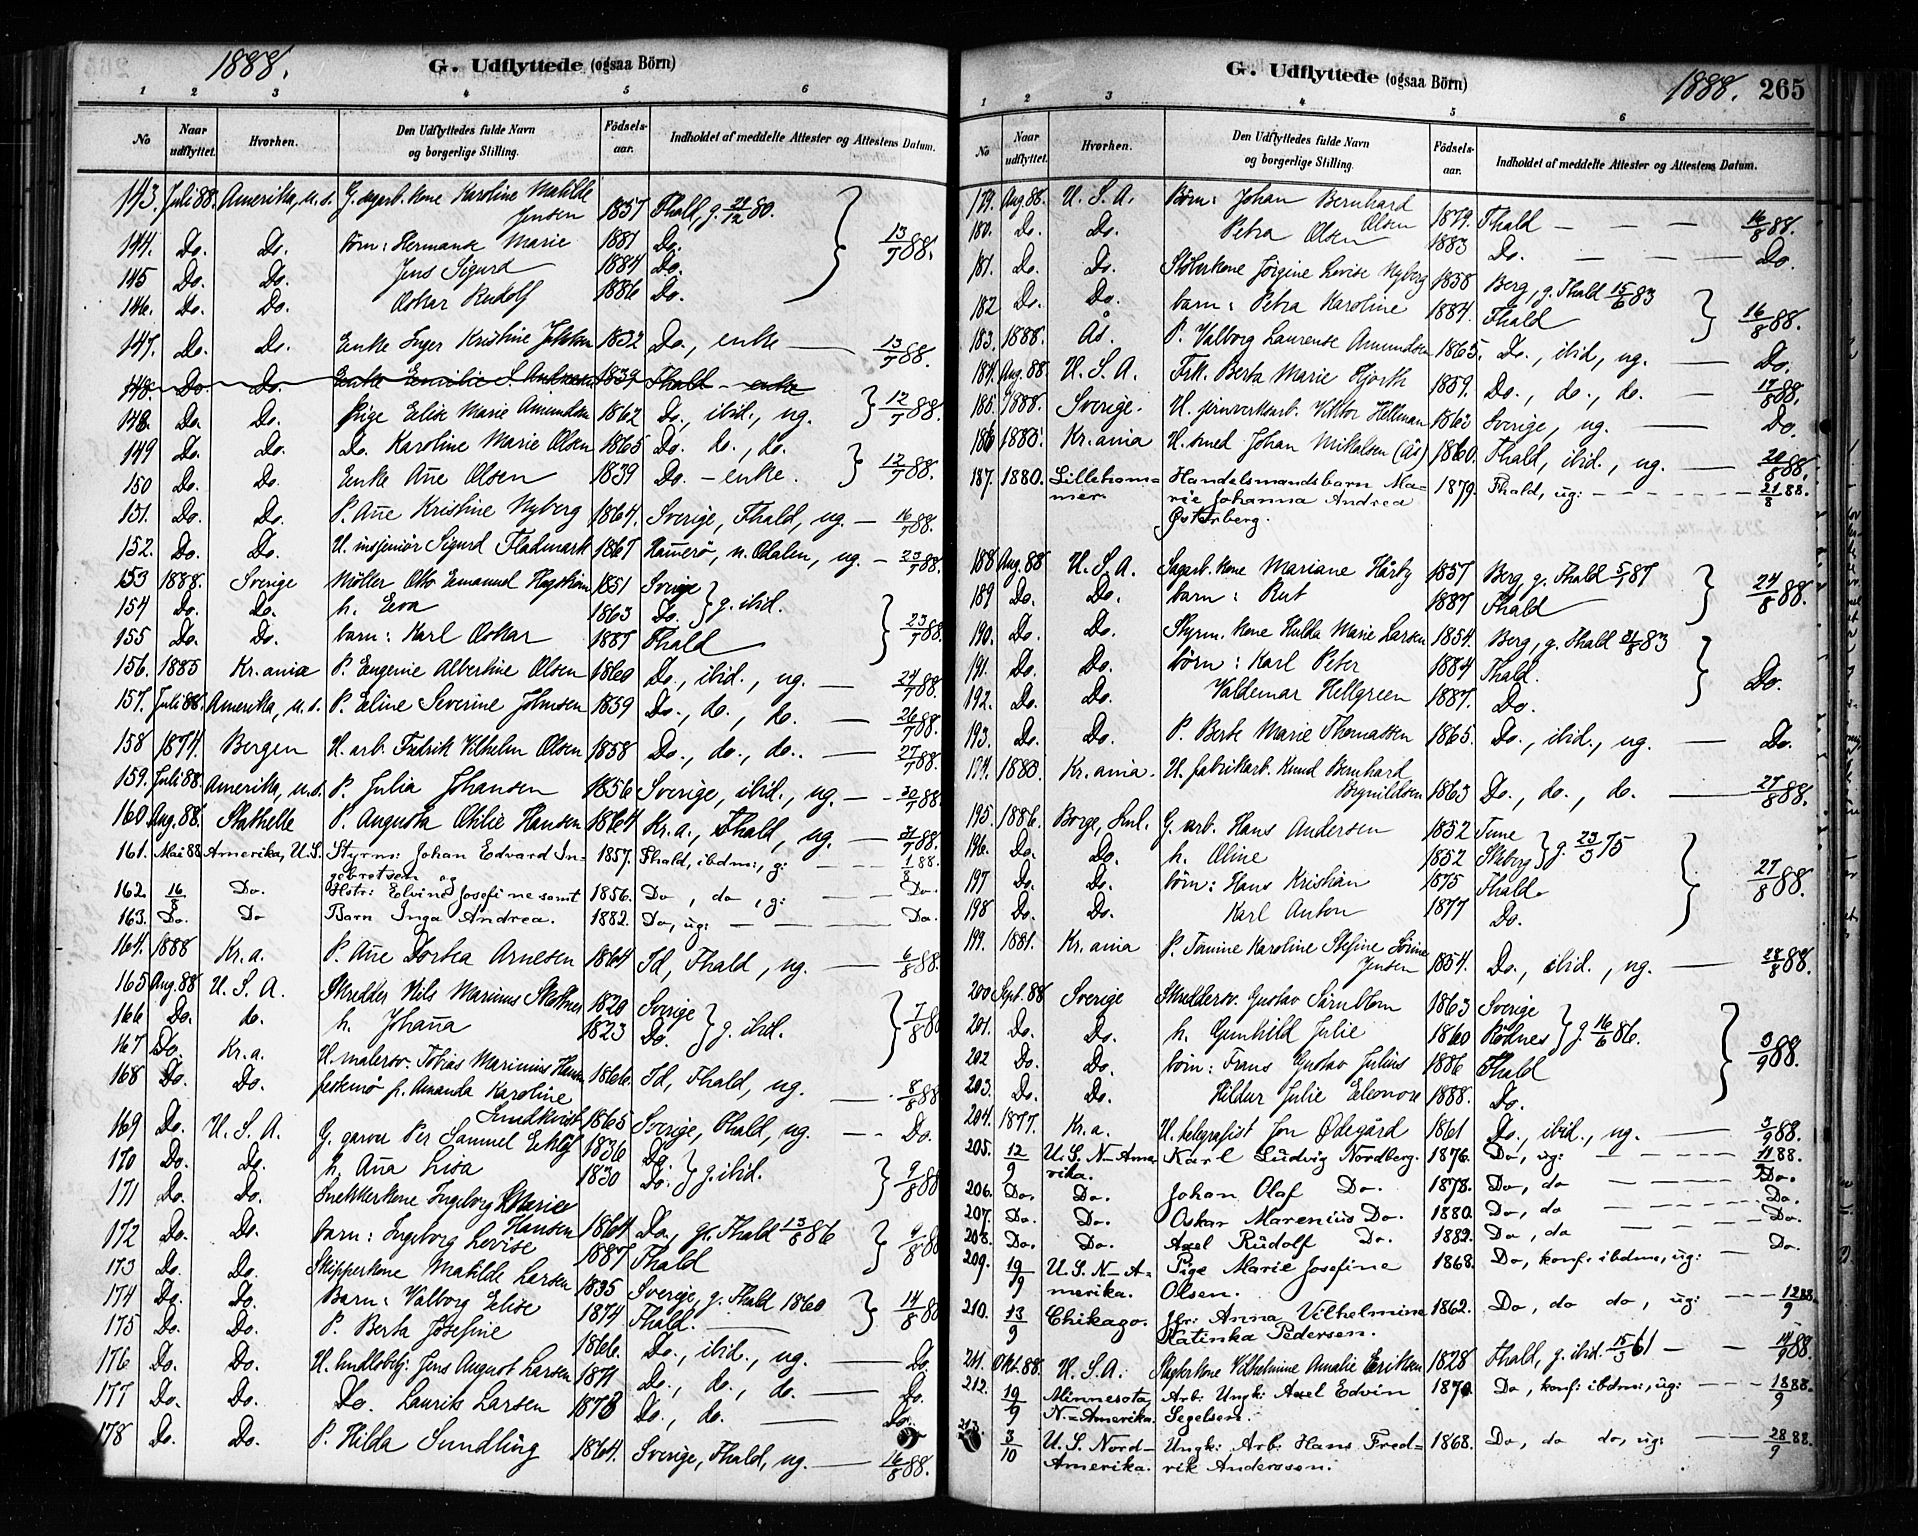 1888.
G. Udflyttede (ogsaa Börn)
1 2 3 4 5 6
No
Naar udflyttet.
Hvorhen.
Den Udflyttedes fulde Navn og borgerlige Stilling.
Födsels-aar.
Indholdet af meddelte Attester og Attestens Datum.
143. Juli 88. Amerika, u.s. G. sagarb. kone Karoline Matilde
Jensen 1857 Fhald, g. 21/12 80.
144. Do. Do. börn: Hermansk Marie 1881 Do. 13/7 88.
145 Do. Do. Jens Sigurd 1884 Do.
146. Do. Do. Oskar Rudolf 1886 Do.
147. Do. Do. Enke Inger Kristine 1832 Do., enke — 13/7 88.
148. Do. Do. Enke Emilie S. Andresen 1839 Fhald - enke
148. Do. Do. Pige Elise Marie Amundsen 1862 Do., ibid., ug. 12/7 88.
149 Do. Do. Do. Karoline Marie Olsen 1865 Do. do., do.
150 Do. Do. Enke Ane Olsen 1839 Do. - enke. 12/7 88.
151. Do. Do. P. Ane Kristine Nyberg 1864. Sverige, Fhald, ug. — 16/7 88.
152. Do. Do. U. insjeniör Sigurd Fladmark 1867 n. Odalen, ug. — 23/7 88.
153 1888. Sverige Möller Otto Emanuel 1851 Sverige
154 Do. Do. h. Eva 1863 Do. g. ibid.
155 Do. Do. barn: Karl Oskar 1887 Fhald 23/7 88.
156. 1885 Kr.ania P. Eugenie Albertine Olsen 1860 Do., ibid., ug. — 24/7 88.
157. Juli 88. Amerika, u.s. P. Eline Severine Johnsen 1839 Do., do., do. — 26/7 88.
158 1874. Bergen U. arb. Fredrik Vilhelm Olsen 1858 Do., do., do. — 27/7 88.
159. Juli 88. Amerika, u.s. P. Julia Johansen 1856 Sverige, ibid., ug. — 30/7 88.
160 Aug. 88. Stathelle P. Augusta Othilie Hansen 1864 Kr.a., Fhald, ug. — 31/7 88.
161. Mai 88 Amerika, U.S. Styrm: Johan Edvard In- 1857. Fhald, ibdm:, g: 1/8 88.
gebretsen og
162. 16/8 Do. Hstr: Elvine Josefine samt 1856. Do, do, g: — — Do.
163. Do. Do Barn Inga Andrea. 1882. Do, ug: — — — Do.
164. 1888 Kr.a. P. Ane Dortea Arnesen 1864 Id, Fhald, ug. — 6/8 88.
165 Aug. 88 U. S. A. Skredder Nils Marinius 1820 Sverige
166 Do. do. h. Johana 1823 Do. g. ibid. 7/8 88
167 Do. Kr.a. U. malersv. Tobias Marinius Hansen 1866. Id, Fhald, ug. — 8/8 88.
168 Do. Do. fr. Amanda Karoline
Lundkvist 1865 Sverige, Fhald, ug. — Do.
169 Do. U. S. A. G. garver Per Samuel 1836 Do.
170 Do. Do. h. Ana Lisa 1830 Do. g. ibid. 9/8 88
171 Do. Do. Snekkerkone Ingeborg Marie
Hansen 1864 Do., g. Fhald 13/8 86
172 Do. Do. barn: Ingeborg Lovise 1887 Fhald 9/8 88
173 Do. Do. Skipperkone Matilde Larsen 1835 Sverige, g. Fhald 1860
174 Do. Do. Barn: Valborg Elise 1874 Fhald. 14/8 88
175 Do. Do. P. Berta Josefine 1866. Do., ibid., ug. — Do.
176 Do. Do. U. Jens August Larsen 1871 Do., do., do. — Do.
177 Do. Do. Do. Laurits Larsen 1873 Do., do. — Do.
178 Do. Do. P. Hilda Sundling 1864. Sverige, Fhald, ug. — 16/8 88.
G. Udflyttede (ogsaa Börn)
1888. 265
1 2 3 4 5 6
No
Naar udflyttet.
Hvorhen.
Den Udflyttedes fulde Navn og borgerlige Stilling.
Födsels-aar.
Indholdet af meddelte Attester og Attestens Datum.
179. Aug 88. U. S. A. Börn: Johan Bernhard
Olsen 1879. Fhald — — — 16/8 88.
180. Do. Do. Petra Olsen 1883 Do. — — — Do.
181. Do. Do. Jörgine Lovise Nyberg 1858 Berg, g. Fhald 15/6 83
182 Do. Do. barn: Petra Karoline 1884. Fhald 16/8 88.
183. 1888. Ås. P. Valborg Laurense Amundsen 1865. Do., ibid, ug. — Do.
184. Aug. 88 U. S. A. Frk. Berta Marie Hjorth 1859. Do., do., do. — 17/8 88.
185. 1888. Sverige. U. jernverksarb. Viktor Hellman 1863 Sverige, ug. — Do.
186 1888. Kr.ania U. smed Johan Mikalsen (Ås) 1860. Fhald, ibid., ug. — 20/8 88.
187. 1880. Lilleham- Handelsmandsbarn Ma- 1879. Fhald, ug: — — — 21/8 88.
mer. rie Johanna Andrea
Østerberg.
188 Aug. 88 U. S. A. Sagarb. kone Mariane Hårby 1857 Berg, g. Fhald 5/1 87
189 Do. Do. barn: Rut 1887 Fhald 24/8 88.
190. Do. Do. Styrm. kone Hulda Marie Larsen 1854. Berg, g. Fhald 21/8 83
191. Do. Do. börn: Karl Peter 1884 Fhald. Do.
192. Do. Do. Valdemar Hellgreen 1887. Do.
193. Do. Do. P. Berte Marie Thomassen 1865. Do., ibid., ug. — Do.
194. 1880. Kr.ania. U. fabrikarb. Knud Bernhard
Brynildsen 1863 Do., do., do. — 27/8 88.
195. 1886. Borge, Sml. G. arb. Hans Andersen 1852 Tune
196. Do. Do. h. Oline 1852 Skeberg g. 23/3 75
197 Do. Do. börn: Hans Kristian 1875 Fhald. 27/8 88.
198 Do. Do. Karl Anton 1877 Do.
199. 1881. Kr.ania P. Tomine Karoline Stefine Sörine
Jensen 1854. Do., ibid., ug. — 28/8 88.
200 Sept. 88 Sverige Skreddersv. Gustav Särnblom 1863 Sverige
201. Do. Do. h. Gunhild Julie 1860 Rödnes g. 16/6 86.
202 Do. Do. börn: Frans Gustav Julius 1886 Fhald 3/9 88.
203. Do. Do. Hildur Julie Eleonore 1888. Do.
204. 1877. Kr.a. U. telegrafist Jon Ødegård 1861 Do., ibid., ug. — 5/9 88.
205. 12/9 U.S. N-Ame- Karl Ludvig Nordberg. 1876. Do, ug: — — — 11/9 88.
rika.
206. Do. Do. Johan Olaf Do. 1878. Do, do — — — Do.
207. Do. Do. Oskar Marenius Do. 1880. Do, do — — — Do.
208. Do. Do. Axel Rudolf Do. 1882. Do, do — — — Do.
209. 19/9 U.S. N-A- Pige Marie Josefine 1868. Do, konf: ibdm:, ug: — Do.
merika. Olsen.
210. 13/9 Chikago. Jfr: Anna Vilhelmine 1862. Do, do do, ug: — — 12/9 88.
Katinka Pedersen.
211. Okt. 88. U. S. A: Slagterkone Vilhelmine Amalie Eriksen 1828 Fhald, g. ibid. 15/3 61 — — 14/9 88
212. 19/9 Minnesota, Arb: Ungk: Axel Edvin 1870. Do, konf: ibdm:, ug: — — — 18/9 88.
N.-Amerika. Segelsen.
213. 3/10 U.S. Nord- Ungk: Arb: Hans Fred- 1868. Do, do do, ug: — — 28/9 88.
Amerika. rik Anderssen.